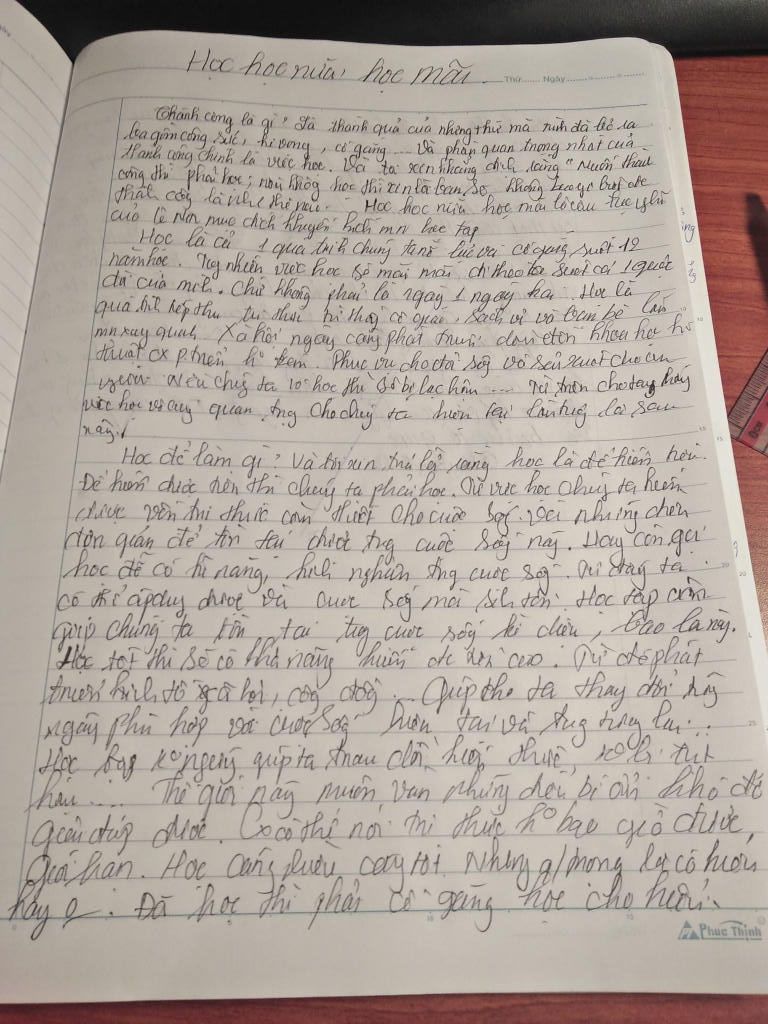 Học học nữa, học mãi
Thứ Ngày
Thành công là gì? Là thành quả của những thứ mà mình đã bỏ ra
bao gồm công sức, hi vọng, cố gắng ... Và phần quan trọng nhất của
thành công chính là việc học. Và ta xin khẳng định rằng "Muốn thành
công thì phải học; nếu không học thì xin là bạn sẽ không được
thành công là như thế nào. Học học nữa học mãi là câu
của Lê Nin mục đích khuyến khích mn học tập
Học là cả 1 quá trình chúng ta nỗ lực và cố gắng suốt 12
năm học. Tuy nhiên việc học sẽ mãi mãi đi theo ta suốt cả 1 cuộc
đời của mình. Chứ không phải là ngày 1 ngày hai. Học là
quá trình tiếp thu tri thức từ thầy cô giáo, sách vở và bạn bè lẫn
mn xung quanh. Xã hội ngày càng phát triển dẫn đến khoa học kĩ
thuật cx p.triển kèm. Phục vụ cho đời sống và sản xuất của con
người. Nếu chúng ta ko học thì sẽ bị lạc hậu .... Từ trên cho ta thấy
việc học vô cùng quan trọng cho chúng ta hiện tại lẫn tương lai sau
này.
Học để làm gì? Và tôi xin trả lời rằng học là để hiểu hơn.
Để hiểu được hơn thì chúng ta phải học. Từ việc học chúng ta hiểu
được vốn tri thức cần thiết cho cuộc sống. Với những điều
đơn giản để tồn tại được trong cuộc sống này. Hay còn gọi
học để có kĩ năng, kinh nghiệm trong cuộc sống. Từ đấy ta
có thể áp dụng được và cuộc sống mới sinh tồn. Học tập còn
giúp chúng ta tồn tại trong cuộc sống kì diệu, bao la này.
Học tốt thì sẽ có khả năng hiểu cao. Từ đó phát
triển kinh tế xã hội, cộng đồng ... Giúp cho ta thay đổi từng
ngày phù hợp với cuộc sống hiện tại và trong tương lai...
Học ko ngừng giúp ta trau dồi kiến thức, ko bị tụt
hậu .... Thế giới này muôn vàn những điều bí ẩn khó để
giải đáp được. Cx có thể nói tri thức ko bao giờ được
giới hạn. Học càng nhiều càng tốt. Nhưng q/trọng là có hiểu
hay o. Đã học thì phải cố gắng học cho hiểu.
Phúc Thịnh